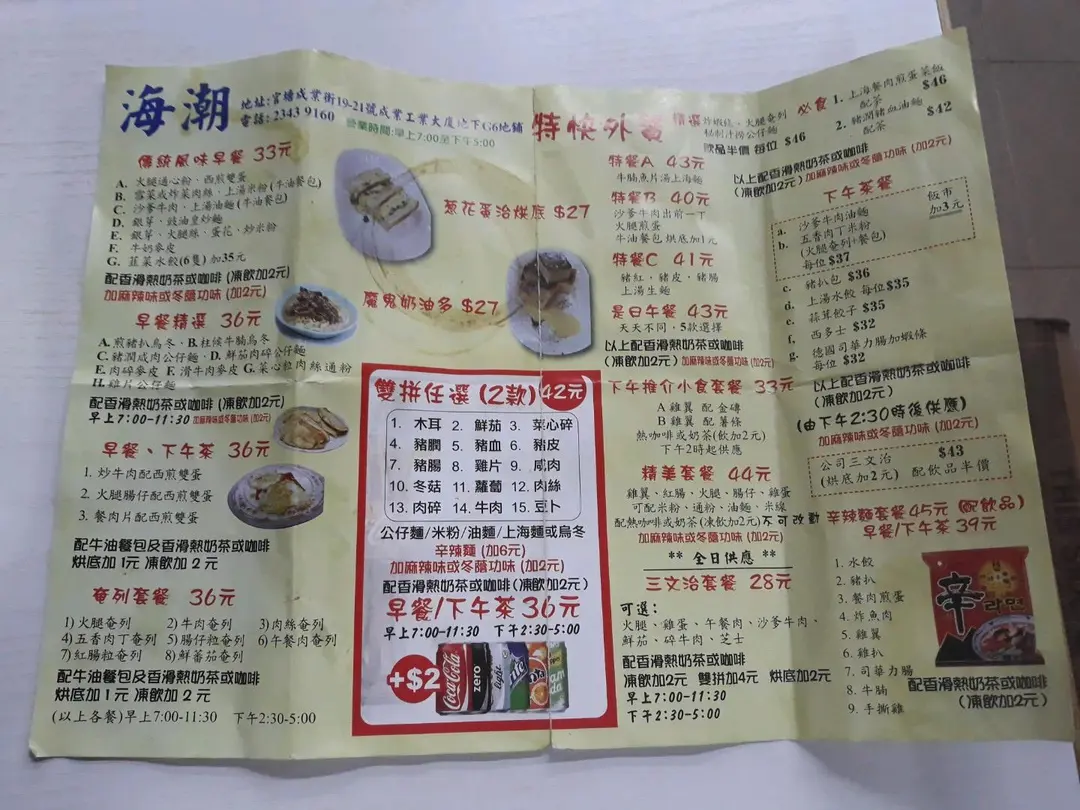 海潮
地址:官塘成業街19-21號成業工業大廈地下G6地鋪
電話: 2343 9160
營業時間:早上7:00至下午5:00
傳統風味早餐 33元
A. 火腿通心粉、西煎雙蛋
B. 雪菜或炸菜肉絲、上湯米粉 (牛油餐包)
C. 沙爹牛肉、上湯油麵 (牛油餐包)
D. 銀芽、豉油皇炒麵
E. 銀芽、火腿絲、蛋花、炒米粉
F. 牛奶麥皮
G. 韮菜水餃(6隻) 加35元
配香滑熱奶茶或咖啡 (凍飲加2元)
加麻辣味或冬蔭功味 (加2元)
早餐精選 36元
A. 煎豬扒烏冬、B. 柱候牛腩烏冬
C. 豬潤咸肉公仔麵、D. 鮮茄肉碎公仔麵
E. 肉碎麥皮 F. 滑牛麥皮 G. 菜心粒肉絲通粉
H. 雞片公仔麵
配香滑熱奶茶或咖啡 (凍飲加2元)
早上7:00-11:30 加麻辣味或冬蔭功味 (加2元)
早餐、下午茶 36元
1. 炒牛肉配西煎雙蛋
2. 火腿腸仔配西煎雙蛋
3. 餐肉片配西煎雙蛋
配牛油餐包及香滑熱奶茶或咖啡
烘底加 1元 凍飲加 2 元
奄列套餐 36元
1) 火腿奄列 2) 牛肉奄列 3) 肉絲奄列
4) 五香肉丁奄列 5) 腸仔粒奄列 6) 午餐肉奄列
7) 紅腸粒奄列 8) 鮮蕃茄奄列
配牛油餐包及香滑熱奶茶或咖啡
烘底加 1 元 凍飲加 2 元
(以上各餐) 早上7:00-11:30 下午2:30-5:00
蔥花蛋治烘底 $27
魔鬼奶油多 $27
雙拼任選 (2款) 42元
1. 木耳 2. 鮮茄 3. 菜心碎
4. 豬膶 5. 豬血 6. 豬皮
7. 豬腸 8. 雞片 9. 咸肉
10. 冬菇 11. 蘿蔔 12. 肉絲
13. 肉碎 14. 牛肉 15. 豆卜
公仔麵/米粉/油麵/上海麵或烏冬
辛辣麵 (加6元)
加麻辣味或冬蔭功味 (加2元)
配香滑熱奶茶或咖啡 (凍飲加2元)
早餐/下午茶 36元
早上7:00-11:30 下午2:30-5:00
+$2
Coca-Cola
zero
light
特快外賣
精選 炸蝦條、火腿奄列
秘制汁撈公仔麵
飲品半價 每位 $46
特餐A 43元
牛腩魚片湯上海麵
特餐B 40元
沙爹牛肉出前一丁
火腿煎蛋
牛油餐包 烘底加1元
特餐C 41元
豬紅、豬皮、豬腸
上湯生麵
是日午餐 43元
天天不同，5款選擇
以上配香滑熱奶茶或咖啡
(凍飲加2元) 加麻辣味或冬蔭功味 (加2元)
下午推介小食套餐 33元
A 雞翼 配 金磚
B 雞翼 配 薯條
熱咖啡或奶茶(飲加2元)
下午2時起供應
精美套餐 44元
雞翼、紅腸、火腿、腸仔、雞蛋
可配米粉、通粉、油麵、米線
配熱咖啡或奶茶 (凍飲加2元) 不可改雜
加麻辣味或冬蔭功味 (加2元)
** 全日供應 **
三文治套餐 28元
可選:
火腿、雞蛋、午餐肉、沙爹牛肉、
鮮茄、碎牛肉、芝士
配香滑熱奶茶或咖啡
凍飲加2元 雙拼加4元 烘底加2元
早上7:00-11:30
下午2:30-5:00
必食 1. 上海餐肉煎蛋菜飯
配茶 $46
2. 豬潤豬血油麵
配茶 $42
以上配香滑熱奶茶或咖啡
(凍飲加2元) 加麻辣味或冬蔭功味 (加2元)
下午茶餐
飯市
加3元
a. 沙爹牛肉油麵
b. 五香肉丁米粉
(火腿奄列+餐包)
每位 $37
c. 豬扒包 $36
d. 上湯水餃 每位 $35
e. 蒜茸餃子 $35
f. 西多士 $32
g. 德國司華力腸加蝦條
每位 $32
以上配香滑熱奶茶或咖啡
(凍飲加2元)
(由下午2:30時後供應)
加麻辣味或冬蔭功味 (加2元)
公司三文治 $43
(烘底加2元) 配飲品半價
辛辣麵套餐 45元 (配飲品)
早餐/下午茶 39元
1. 水餃
2. 豬扒
3. 餐肉煎蛋
4. 炸魚肉
5. 雞翼
6. 雞扒
7. 司華力腸
8. 牛腩
9. 手撕雞
辛
라면
配香滑熱奶茶或咖啡
(凍飲加2元)